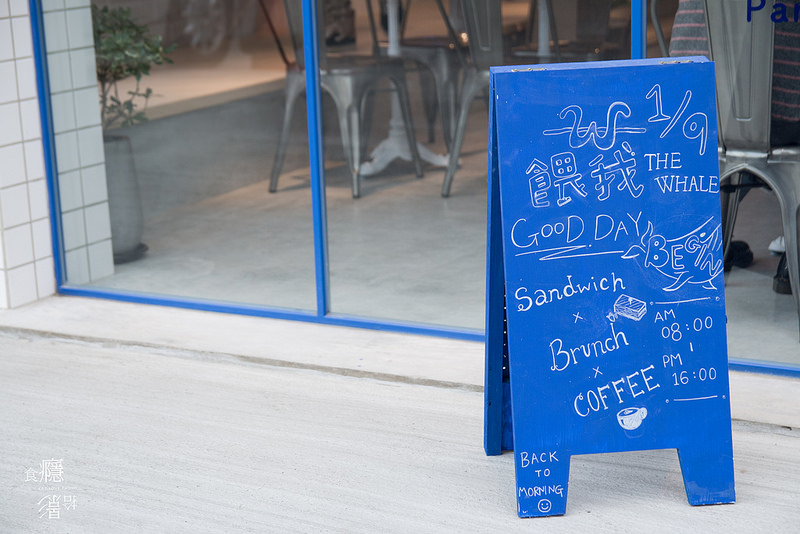 Par
W 1/9
餵我 THE
WHALE
GOOD DAY
BEGIN
Sandwich
x
Brunch
x
COFFEE
AM
08:00
PM |
16:00
BACK
TO
MORNING
食癮